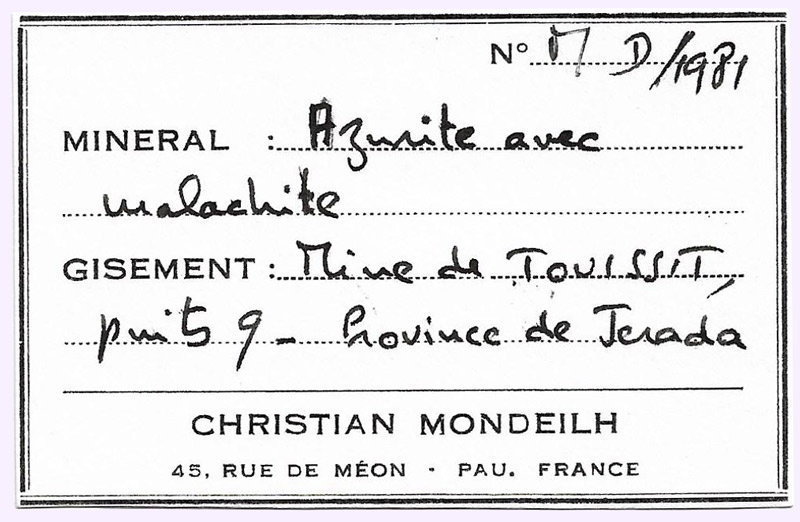 N° M D/1981
MINERAL : Azurite avec
malachite
GISEMENT : Mine de TOUISSIT,
puits 9 - Province de Jerada
CHRISTIAN MONDEILH
45, RUE DE MÉON · PAU. FRANCE